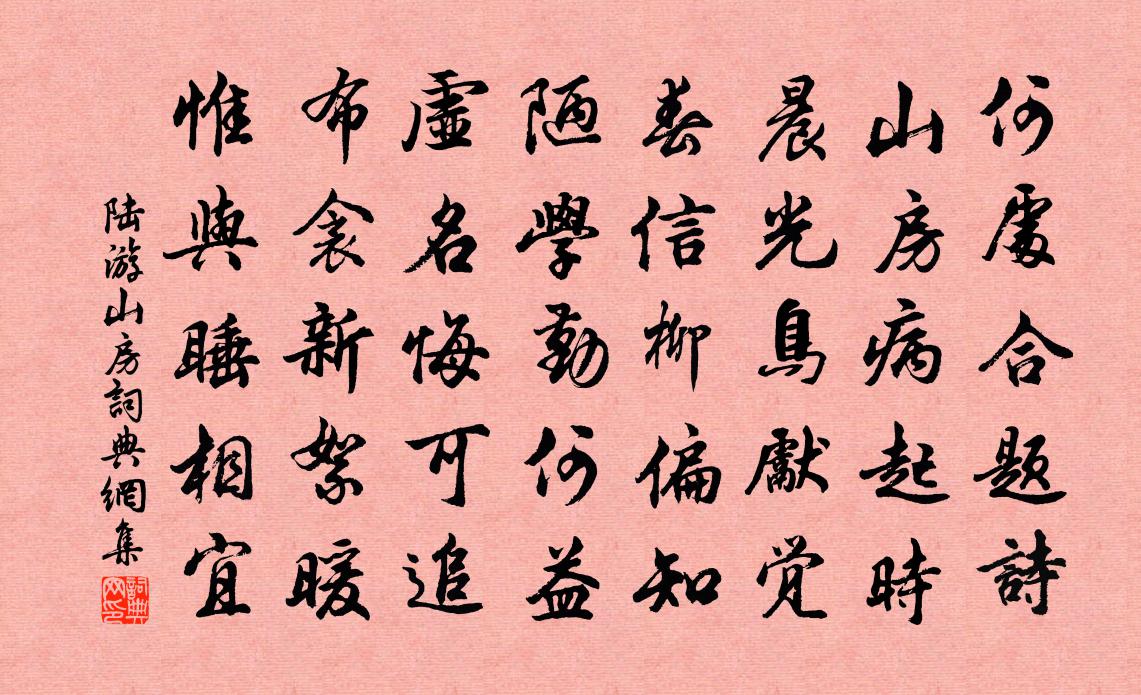 何處合題詩
山房病起時
晨光鳥獻覺
春信柳偏知
陋學勤何益
虛名悔可追
布衾新絮暖
惟與睡相宜
陆游山房詞典網集
詞典网印